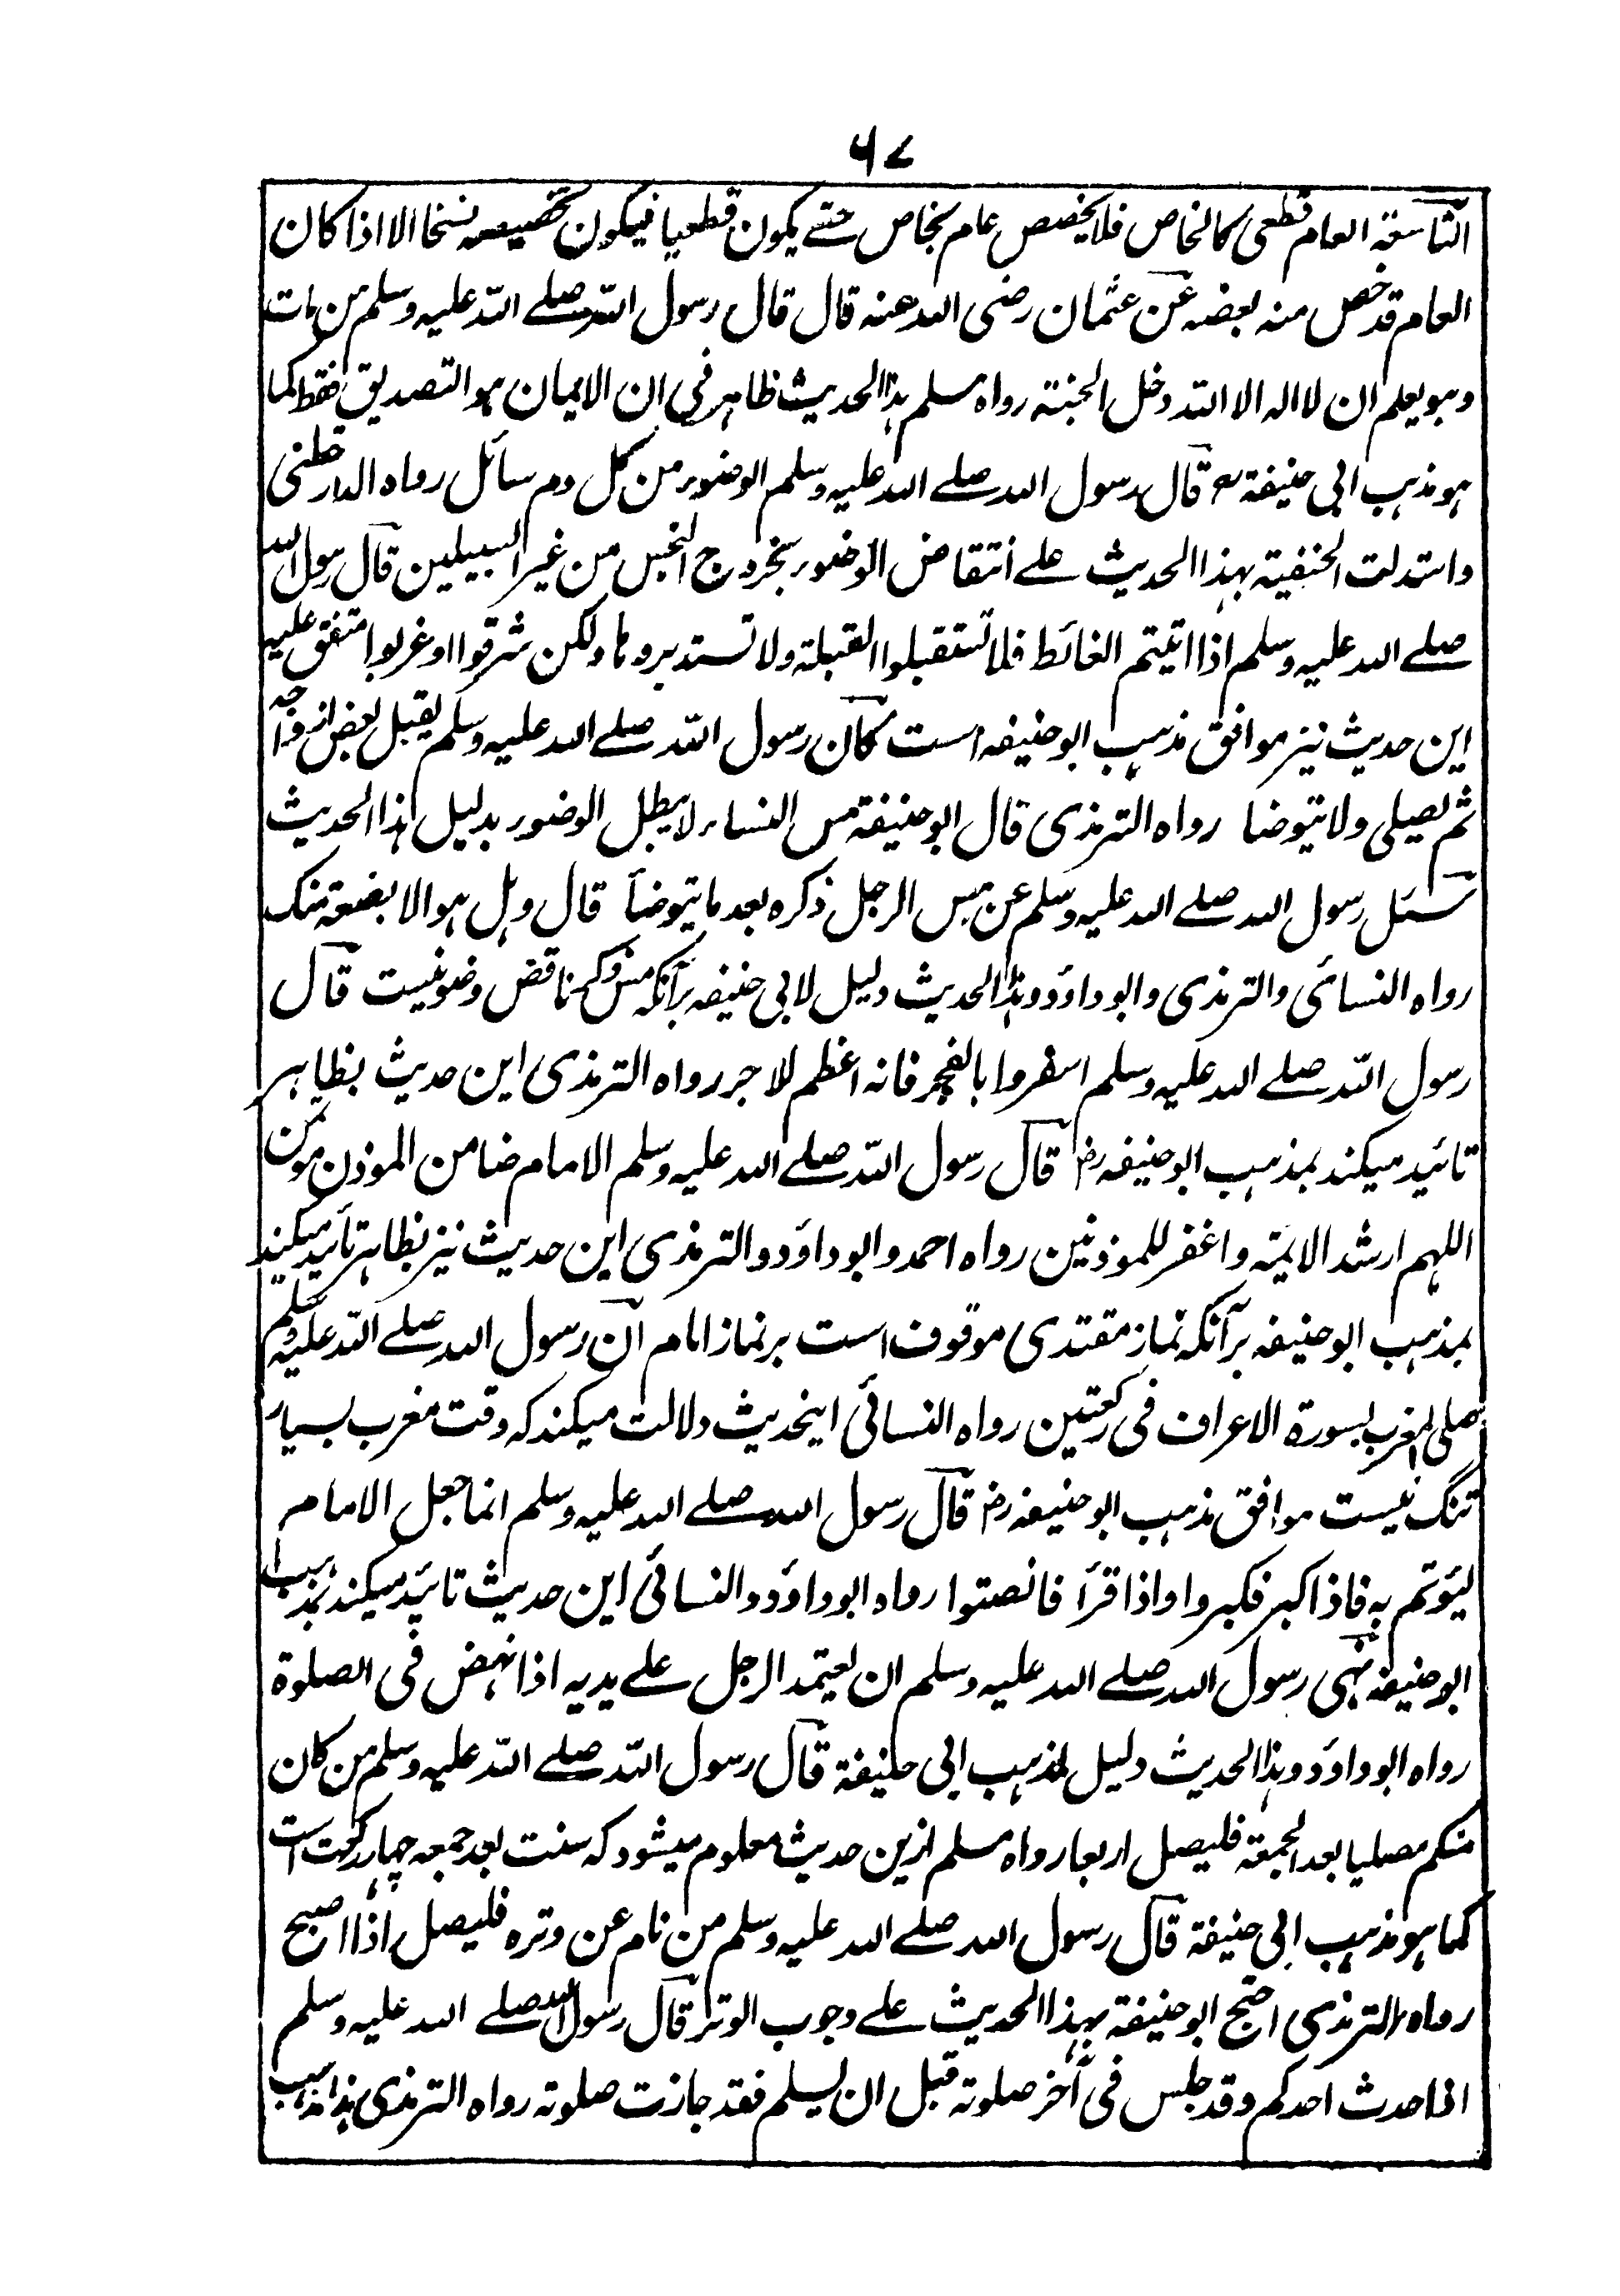 ۶۷
التاسعة العام قطعی کالخاص فلا یخصص عام بخاص حتے یکون قطعیا فیکون تخصیصہ نسخا الا اذا کان
العام قد خص منہ بعضہ عن عثمان رضی اللہ عنہ قال قال رسول اللہ صلے اللہ علیہ وسلم من مات
وہو یعلم ان لا الہ الا اللہ دخل الجنة رواہ مسلم ہذا الحدیث ظاہر فی ان الایمان ہو التصدیق فقط کما
ہو مذہب ابی حنیفة رح قال رسول اللہ صلے اللہ علیہ وسلم الوضوء من کل دم سائل رواہ الدارقطنی
واستدلت الحنفیة بہذا الحدیث علے انتقاض الوضوء بخروج النجس من غیر السبیلین قال رسول اللہ
صلے اللہ علیہ وسلم اذا اتیتم الغائط فلا تستقبلوا القبلة ولا تستدبروہا ولکن شرقوا او غربوا متفق علیہ
این حدیث نیز موافق مذہب ابو حنیفہ است کان رسول اللہ صلے اللہ علیہ وسلم یقبل بعض ازواجہ
ثم یصلی ولا یتوضا رواہ الترمذی قال ابو حنیفة مس النساء لا یبطل الوضوء بدلیل ہذا الحدیث
سئل رسول اللہ صلے اللہ علیہ وسلم عن مس الرجل ذکرہ بعد ما یتوضأ قال وہل ہو الا بضعة منک
رواہ النسائی والترمذی وابو داؤد وہذا الحدیث دلیل لابی حنیفہ برآنکہ مس ذکر ناقض وضو نیست قال
رسول اللہ صلے اللہ علیہ وسلم اسفروا بالفجر فانہ اعظم للاجر رواہ الترمذی این حدیث بظاہر
تائید میکند بمذہب ابو حنیفہ رض قال رسول اللہ صلے اللہ علیہ وسلم الامام ضامن الموذن موتمن
اللہم ارشد الایمة واغفر للموذنین رواہ احمد وابو داؤد والترمذی این حدیث نیز بظاہر تأئید میکند
بمذہب ابو حنیفہ برآنکہ نماز مقتدی موقوف است برنماز امام ان رسول اللہ صلے اللہ علیہ وسلم
صلی المغرب بسورة الاعراف فی رکعتین رواہ النسائی اینحدیث دلالت میکند کہ وقت مغرب بسیار
تنگ نیست موافق مذہب ابو حنیفہ رض قال رسول اللہ صلے اللہ علیہ وسلم انما جعل الامام
لیؤتم بہ فاذا کبر فکبروا واذا قرأ فانصتوا رواہ ابو داؤد والنسائی این حدیث تائید میکند بمذہب
ابو حنیفہ نہی رسول اللہ صلے اللہ علیہ وسلم ان یعتمد الرجل علے یدیہ اذا نہض فی الصلوة
رواہ ابو داؤد وہذا الحدیث دلیل لمذہب ابی حنیفة قال رسول اللہ صلے اللہ علیہ وسلم من کان
منکم مصلیا بعد الجمعة فلیصل اربعا رواہ مسلم ازین حدیث معلوم میشود کہ سنت بعد جمعہ چہار رکعت است
کما ہو مذہب ابی حنیفة قال رسول اللہ صلے اللہ علیہ وسلم من نام عن وترہ فلیصل اذا اصبح
رواہ الترمذی احتج ابو حنیفة بہذا الحدیث علے وجوب الوتر قال رسول اللہ صلے اللہ علیہ وسلم
اذا احدث احدکم وقد جلس فی آخر صلوتہ قبل ان یسلم فقد جازت صلوتہ رواہ الترمذی ہذا مذہب